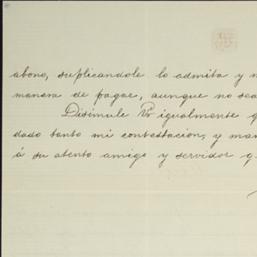 abono, suplicandole lo admita y
manera de pagar, aunque no sea
Disimule Vº igualmente
dado tanto mi contestacion, y
á su atento amigo y servidor q.